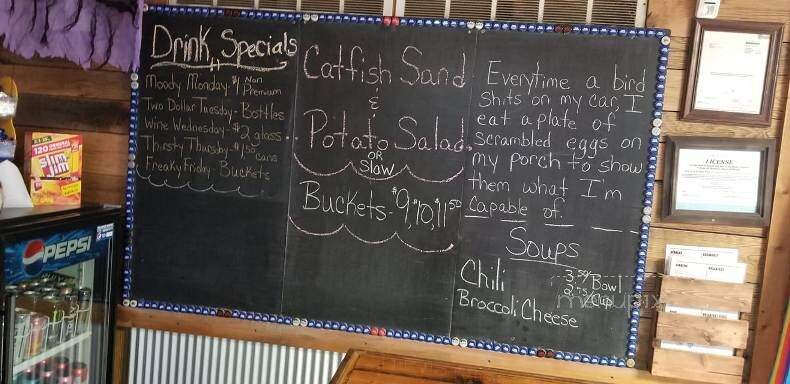 Drink Specials
Moody Monday- $1 Non Premium
Two Dollar Tuesday- Bottles
Wine Wednesday- $2 glass
Thirsty Thursday- $1.50 cans
Freaky Friday- Buckets
Catfish Sand
&
Potato Salad
OR
Slaw
Buckets- $9, $10, $11.50
Everytime a bird
shits on my car, I
eat a plate of
scrambled eggs on
my porch to show
them what I'm
capable of.
Soups
Chili
Broccoli Cheese
Bowl
Cup
LICENSE
Slim
Jim
PEPSI